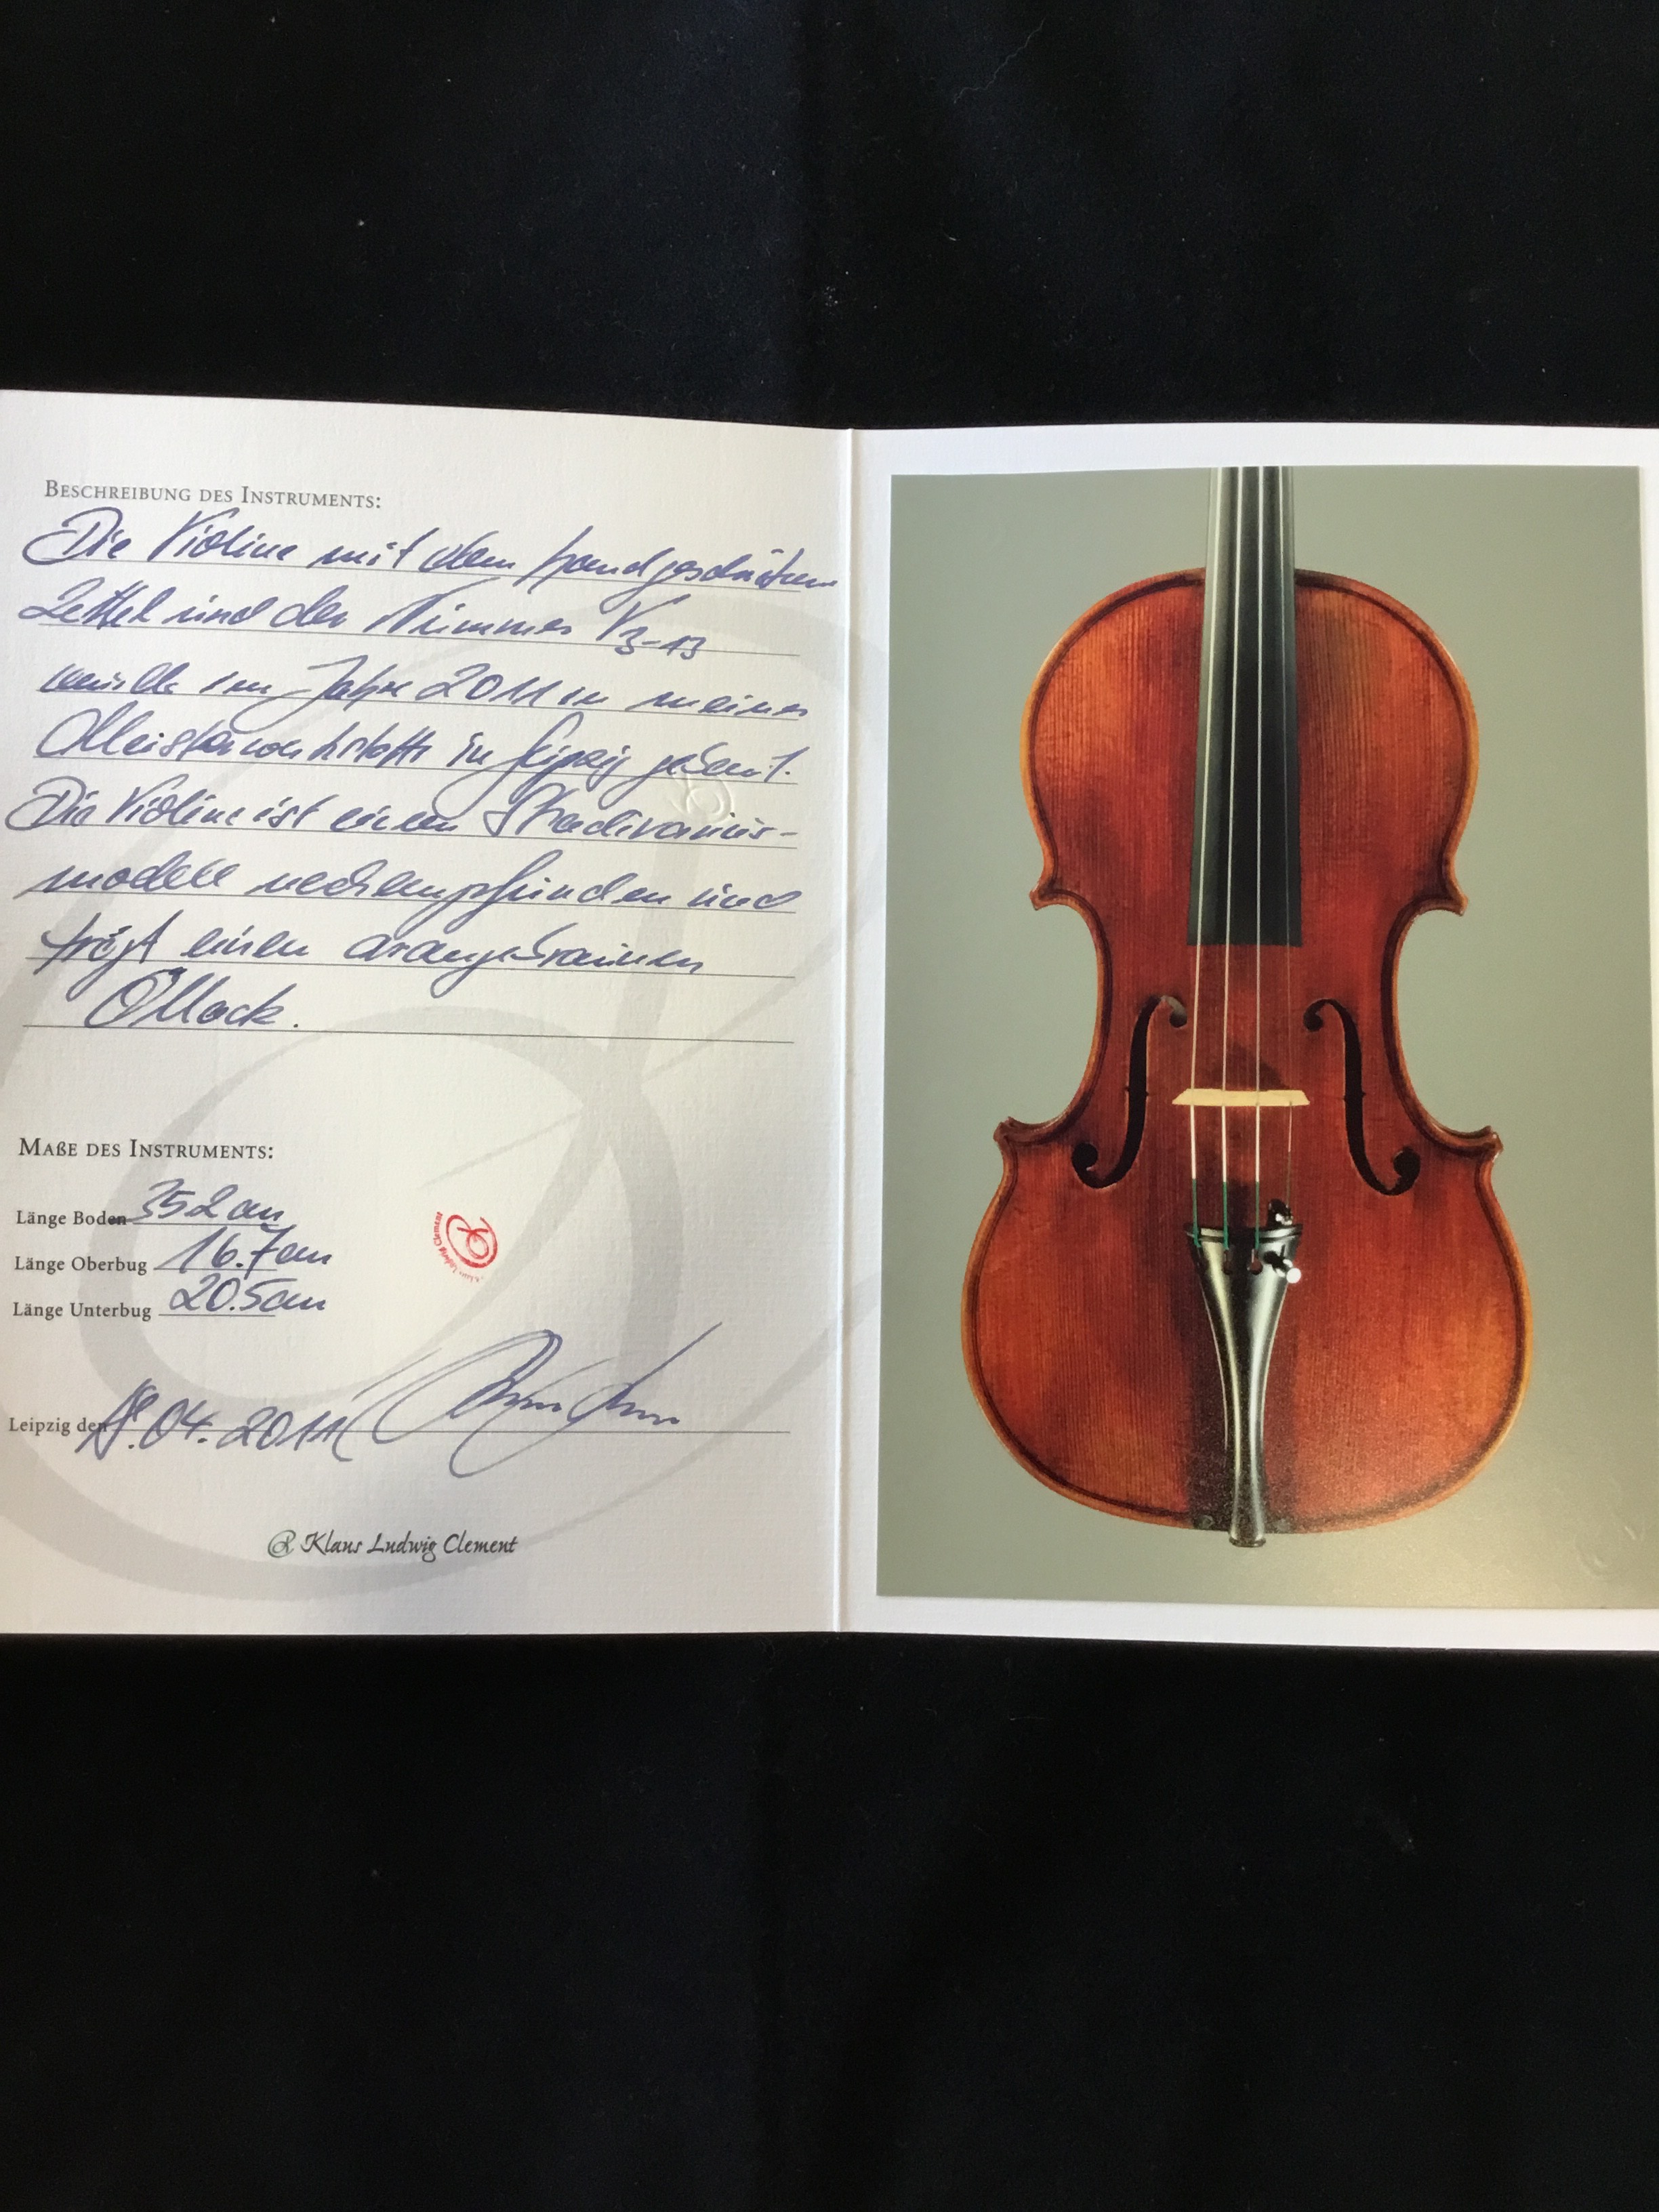 BESCHREIBUNG DES INSTRUMENTS:
Die Violine mit dem handgeschriebenen
Zettel und der Nummer V3-13
wurde im Jahre 2011 in meiner
Meisterwerkstatt in Leipzig gebaut.
Die Violine ist einem Stradivarius-
modell nachempfunden und
trägt einen orangebraunen
Öllack.
MAßE DES INSTRUMENTS:
Länge Boden 35 2 cm
Länge Oberbug 16.7 cm
Länge Unterbug 20.5 cm
Klaus Ludwig Clement
Leipzig den .04.2011
Klaus Ludwig Clement